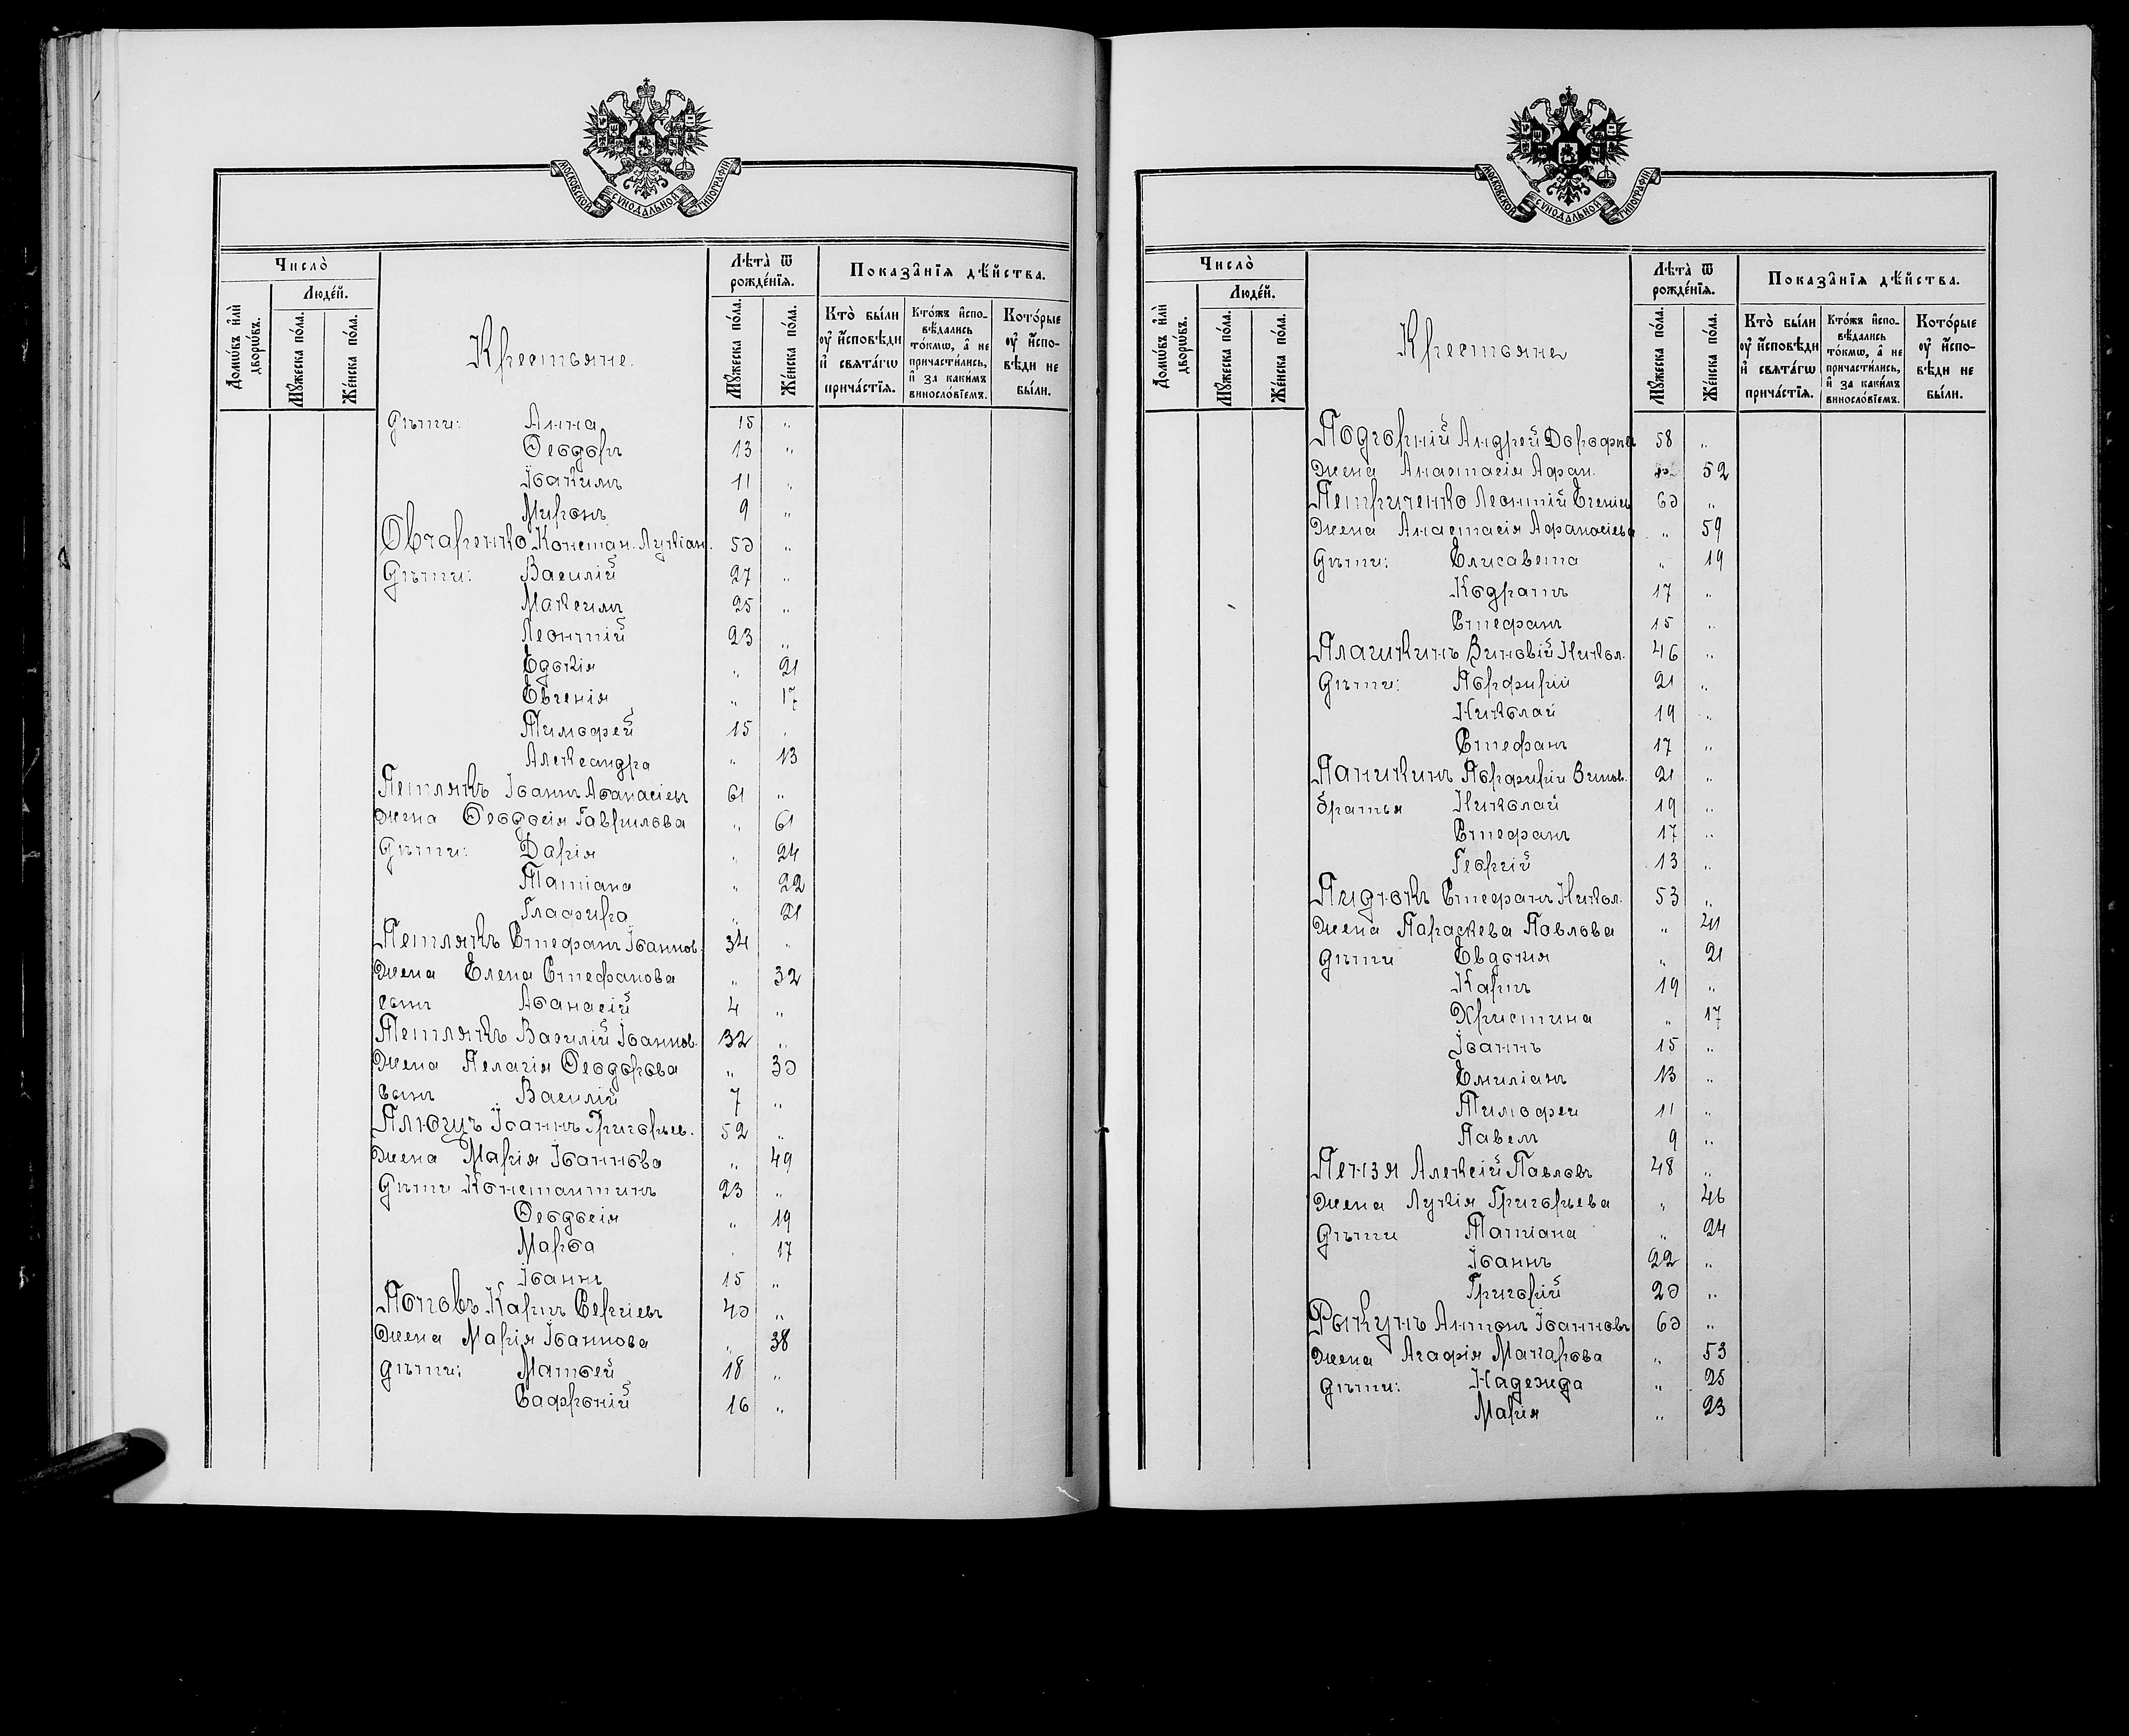 МОСКОВСКОЙ СѴНОДАЛЬНОЙ ТИПОГРАФІИ
Число̀
Люде́й.
Домѡ́въ и҆лѝ дворѡ́въ.
Мꙋ́жеска по́ла.
Же́нска по́ла.
Крестьяне.
Лѣта̀ ѿ рожде́нїя.
Мꙋ́жеска по́ла.
Же́нска по́ла.
Показа̑нїя дѣ́йства.
Кто̀ бы́ли ᲂу҆ и҆сповѣ́ди и҆ свята́гѡ прича́стїя.
Кто́жъ и҆спо-вѣ́дались то́кмѡ, а҆ не причасти́лись, и҆ за каки́мъ винослό́вїемъ.
Кото́рые ᲂу҆ и҆спо-вѣ́ди не бы́ли.
Дѣти: Анна 15 „
Ѳеодоръ 13 „
Іоакимъ 11 „
Миронъ 9 „
Овчаренко Констан. Лукіан. 50 „
Дѣти: Василій 27 „
Максимъ 25 „
Леонтій 23 „
Едокія „ 21
Евгенія „ 17
Тимофей 15 „
Александра „ 13
Петлякъ Іоаннъ Аѳанасіевъ 61 „
жена Ѳеодосія Гаврилова „ 61
Дѣти: Дарія „ 24
Татіана „ 22
Глафира „ 21
Петлякъ Стефанъ Іоаннов. 34 „
жена Елена Стефанова „ 32
сынъ Аѳанасій 4 „
Петлякъ Василій Іоаннов. 32 „
жена Пелагія Ѳеодорова „ 30
сынъ Василій 7 „
Плющъ Іоаннъ Григорьев. 52 „
жена Марія Іоаннова „ 49
Дѣти Константинъ 23 „
Ѳеодосія „ 19
Марѳа „ 17
Іоаннъ 15 „
Поповъ Карпъ Сергіевъ 40 „
жена Марія Іоаннова „ 38
Дѣти: Матѳей 18 „
Сафроній 16 „
МОСКОВСКОЙ СѴНОДАЛЬНОЙ ТИПОГРАФІИ
Число̀
Люде́й.
Домѡ́въ и҆лѝ дворѡ́въ.
Мꙋ́жеска по́ла.
Же́нска по́ла.
Крестьяне
Лѣта̀ ѿ рожде́нїя.
Мꙋ́жеска по́ла.
Же́нска по́ла.
Показа̑нїя дѣ́йства.
Кто̀ бы́ли ᲂу҆ и҆сповѣ́ди и҆ свята́гѡ прича́стїя.
Кто́жъ и҆спо-вѣ́дались то́кмѡ, а҆ не причасти́лись, и҆ за каки́мъ винослό́вїемъ.
Кото́рые ᲂу҆ и҆спо-вѣ́ди не бы́ли.
Подгорній Андрей Дорофее 58 „
жена Анастасія Афан. 52
Петриченко Леонтій Евгеніев 60 „
жена Анастасія Афанасіева „ 59
Дѣти: Елисавета „ 19
Кодратъ 17 „
Стефанъ 15 „
Зиновій Никол. 46 „
Дѣти: Порфирій 21 „
Николай 19 „
Стефанъ 17 „
Паникинъ Порфирій Зинов. 21 „
братья Николай 19 „
Стефанъ 17 „
Георгій 13 „
Пиднокъ Стефанъ Никол. 53 „
жена Параскева Павлова „ 41
Дѣти Евдокия „ 21
Карпъ 19 „
Христина „ 17
Іоаннъ 15 „
Емиліанъ 13 „
Тимофей 11 „
Павелъ 9 „
Пензя Алексій Павловъ 48 „
жена Лукія Григорьева „ 46
Дѣти Татіана „ 24
Іоаннъ 22 „
Григорій 20 „
Рыкунъ Антонъ Іоанновъ 60 „
жена Агафія Макарова „ 53
Дѣти: Надежда „ 25
Марія „ 23